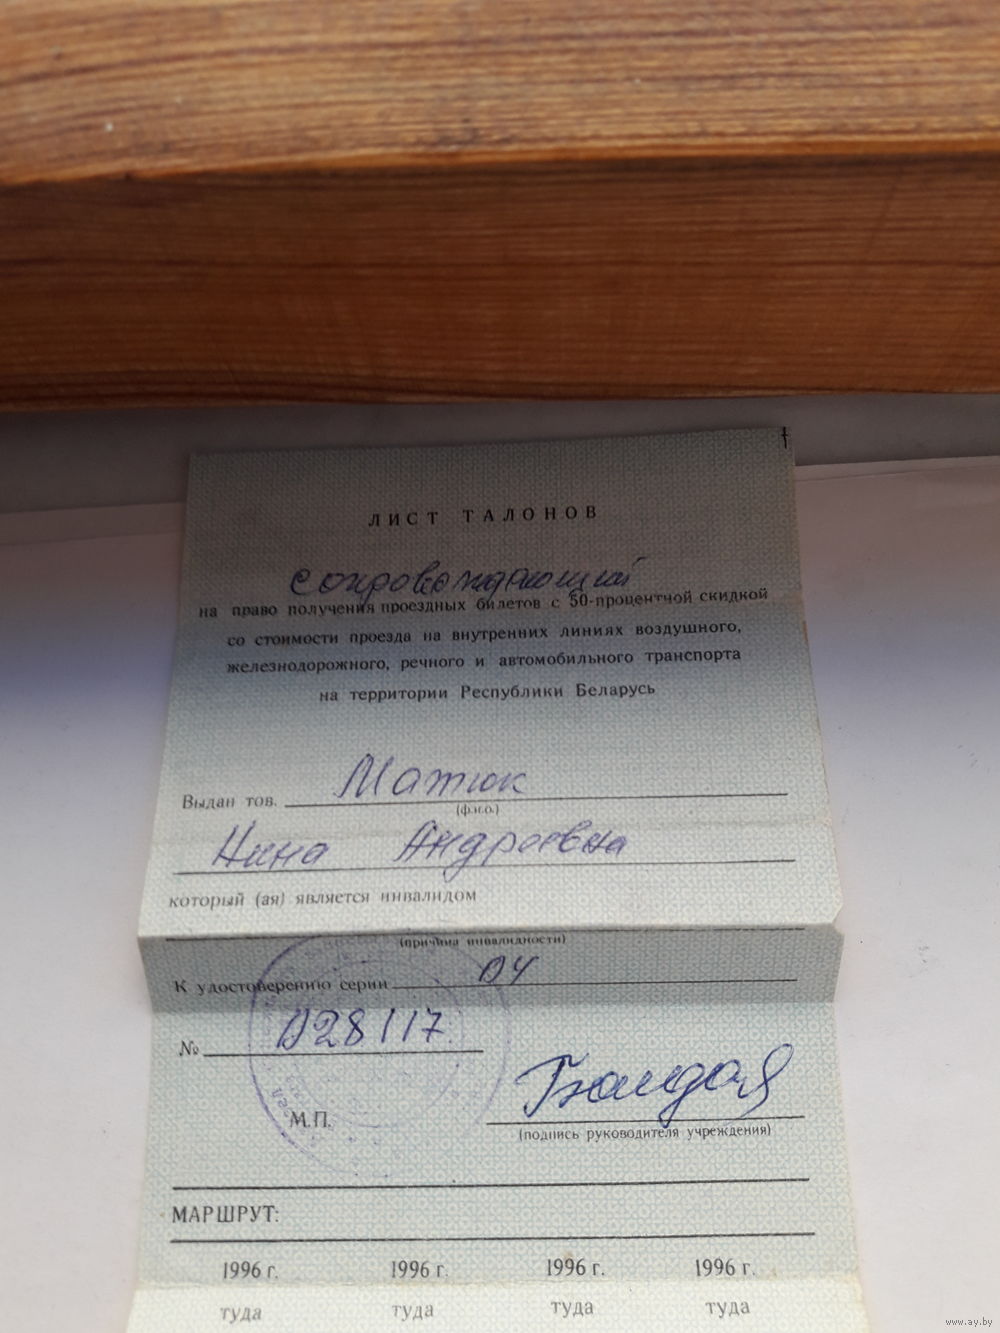 ЛИСТ ТАЛОНОВ
сопровождающий
на право получения проездных билетов с 50-процентной скидкой
со стоимости проезда на внутренних линиях воздушного,
железнодорожного, речного и автомобильного транспорта
на территории Республики Беларусь
Выдан тов. Матюк
(ф.и.о.)
Нина Андреевна
который (ая) является инвалидом
(причина инвалидности)
К удостоверению серии 04
№ 028117
М.П.
(подпись руководителя учреждения)
МАРШРУТ:
1996 г. 1996 г. 1996 г. 1996 г.
туда туда туда туда
www.ay.by